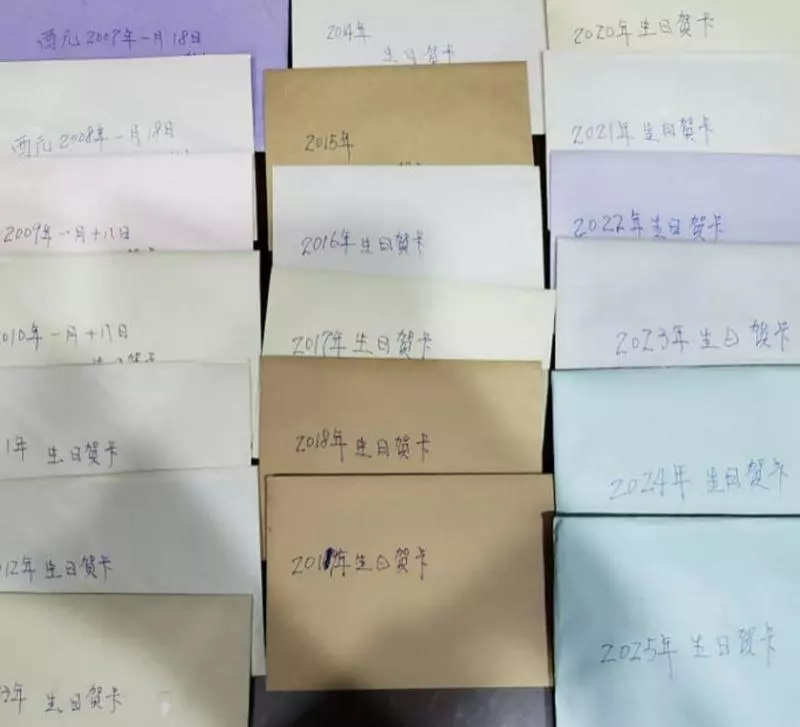 西元2007年一月18日
西元2008年一月18日
2009年一月十八日
010年一月十八日
生日賀卡
1年 生日賀卡
012年 生日賀卡
3年 生日賀卡
2014年
生日賀卡
2015年
2016年生日賀卡
2017年生日賀卡
2018年生日賀卡
201年生日賀卡
2020年生日賀卡
2021年生日賀卡
2022年生日賀卡
2023年生日賀卡
2024年生日賀卡
2025年生日賀卡